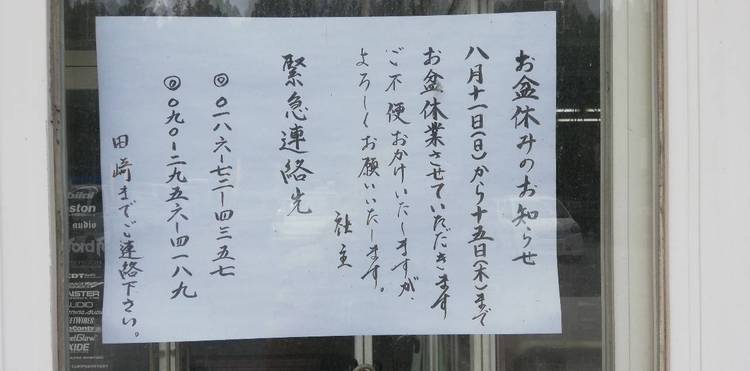 お盆休みのお知らせ
八月十一日(日)から十五日(木)まで
お盆休業させていただきます
ご不便おかけいたしますが、
よろしくお願いいたします。
社主
緊急連絡先
◎〇一八六-七二-四三五七
◎〇九〇-二九五六-四一八九
田崎までご連絡下さい。
audio